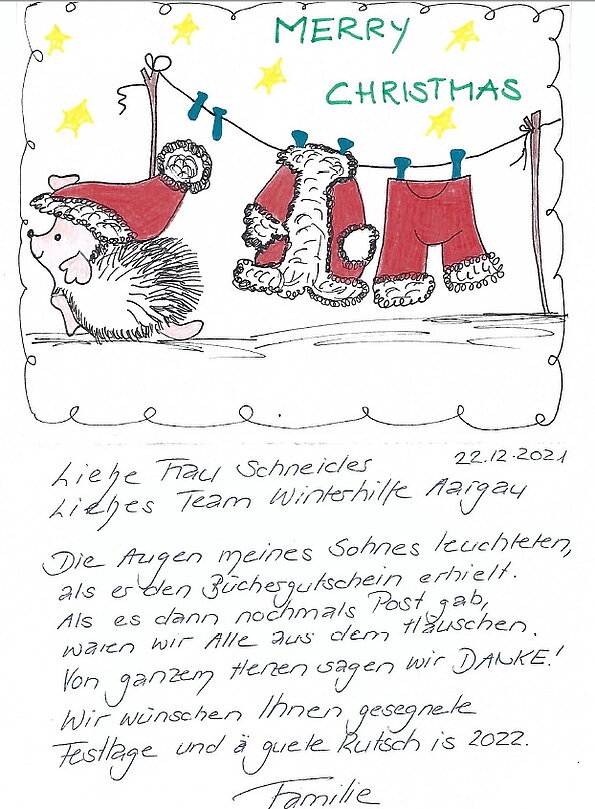 MERRY
CHRISTMAS
22.12.2021
Liebe Frau Schneider
Liebes Team Winterhilfe Aargau
Die Augen meines Sohnes leuchteten,
als er den Büchergutschein erhielt.
Als es dann nochmals Post gab,
waren wir Alle aus dem Häuschen.
Von ganzem Herzen sagen wir DANKE!
Wir wünschen Ihnen gesegnete
Festtage und ä guete Rutsch is 2022.
Familie